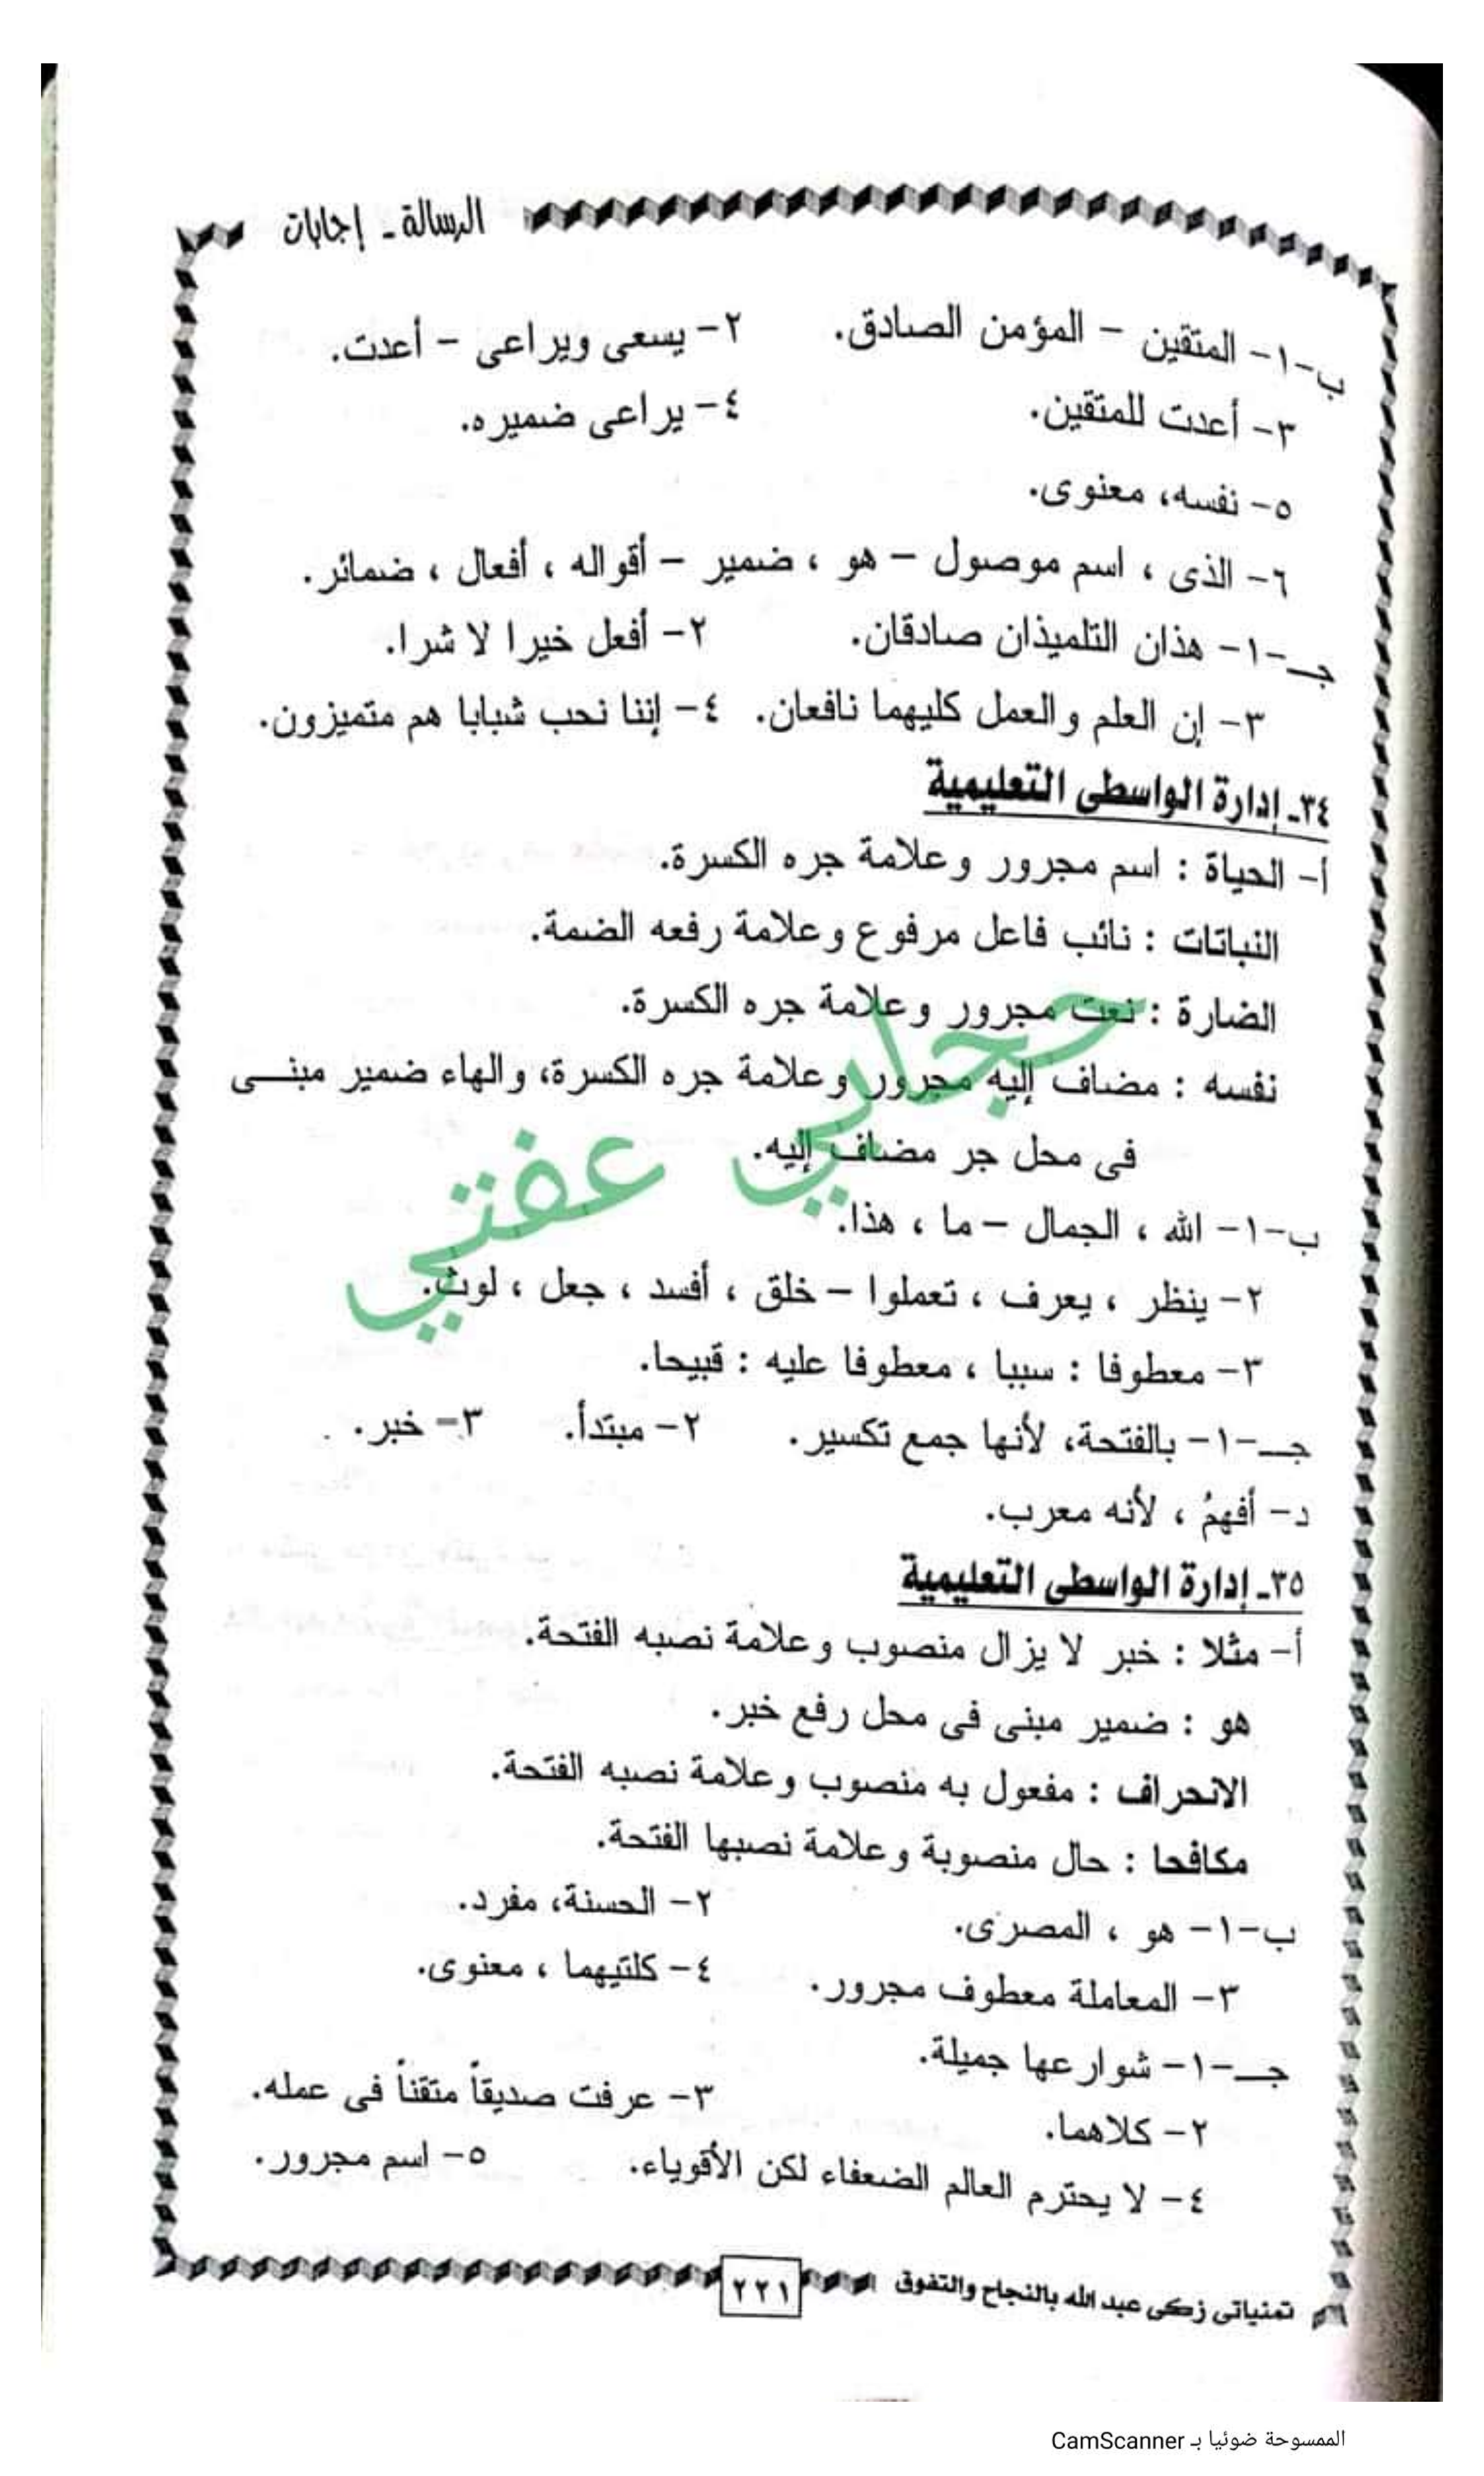 الرسالة - إجابات
ب-١- المتقين - المؤمن الصادق. ٢- يسعى ويراعى - أعدت.
٣- أعدت للمتقين. ٤- يراعى ضميره.
٥- نفسه، معنوى.
٦- الذى ، اسم موصول - هو ، ضمير - أقواله ، أفعال ، ضمائر.
جـ-١- هذان التلميذان صادقان. ٢- أفعل خيرا لا شرا.
٣- إن العلم والعمل كليهما نافعان. ٤- إننا نحب شبابا هم متميزون.
٣٤- إدارة الواسطى التعليمية
أ- الحياة : اسم مجرور وعلامة جره الكسرة.
النباتات : نائب فاعل مرفوع وعلامة رفعه الضمة.
الضارة : نعت مجرور وعلامة جره الكسرة.
نفسه : مضاف إليه مجرور وعلامة جره الكسرة، والهاء ضمير مبنـى
فى محل جر مضاف إليه.
حجابي عفتي
ب-١- الله ، الجمال - ما ، هذا.
٢- ينظر ، يعرف ، تعملوا - خلق ، أفسد ، جعل ، لوث.
٣- معطوفا : سببا ، معطوفا عليه : قبيحا.
جـ-١- بالفتحة، لأنها جمع تكسير. ٢- مبتدأ. ٣- خبر.
د- أفهمُ ، لأنه معرب.
٣٥- إدارة الواسطى التعليمية
أ- مثلا : خبر لا يزال منصوب وعلامة نصبه الفتحة.
هو : ضمير مبنى فى محل رفع خبر.
الانحراف : مفعول به منصوب وعلامة نصبه الفتحة.
مكافحا : حال منصوبة وعلامة نصبها الفتحة.
ب-١- هو ، المصرى. ٢- الحسنة، مفرد.
٣- المعاملة معطوف مجرور. ٤- كلتيهما ، معنوى.
جـ-١- شوارعها جميلة.
٢- كلاهما. ٣- عرفت صديقاً متقناً فى عمله.
٤- لا يحترم العالم الضعفاء لكن الأقوياء. ٥- اسم مجرور.
تمنياتى زكى عبد الله بالنجاح والتفوق ٢٢١
الممسوحة ضوئيا بـ CamScanner